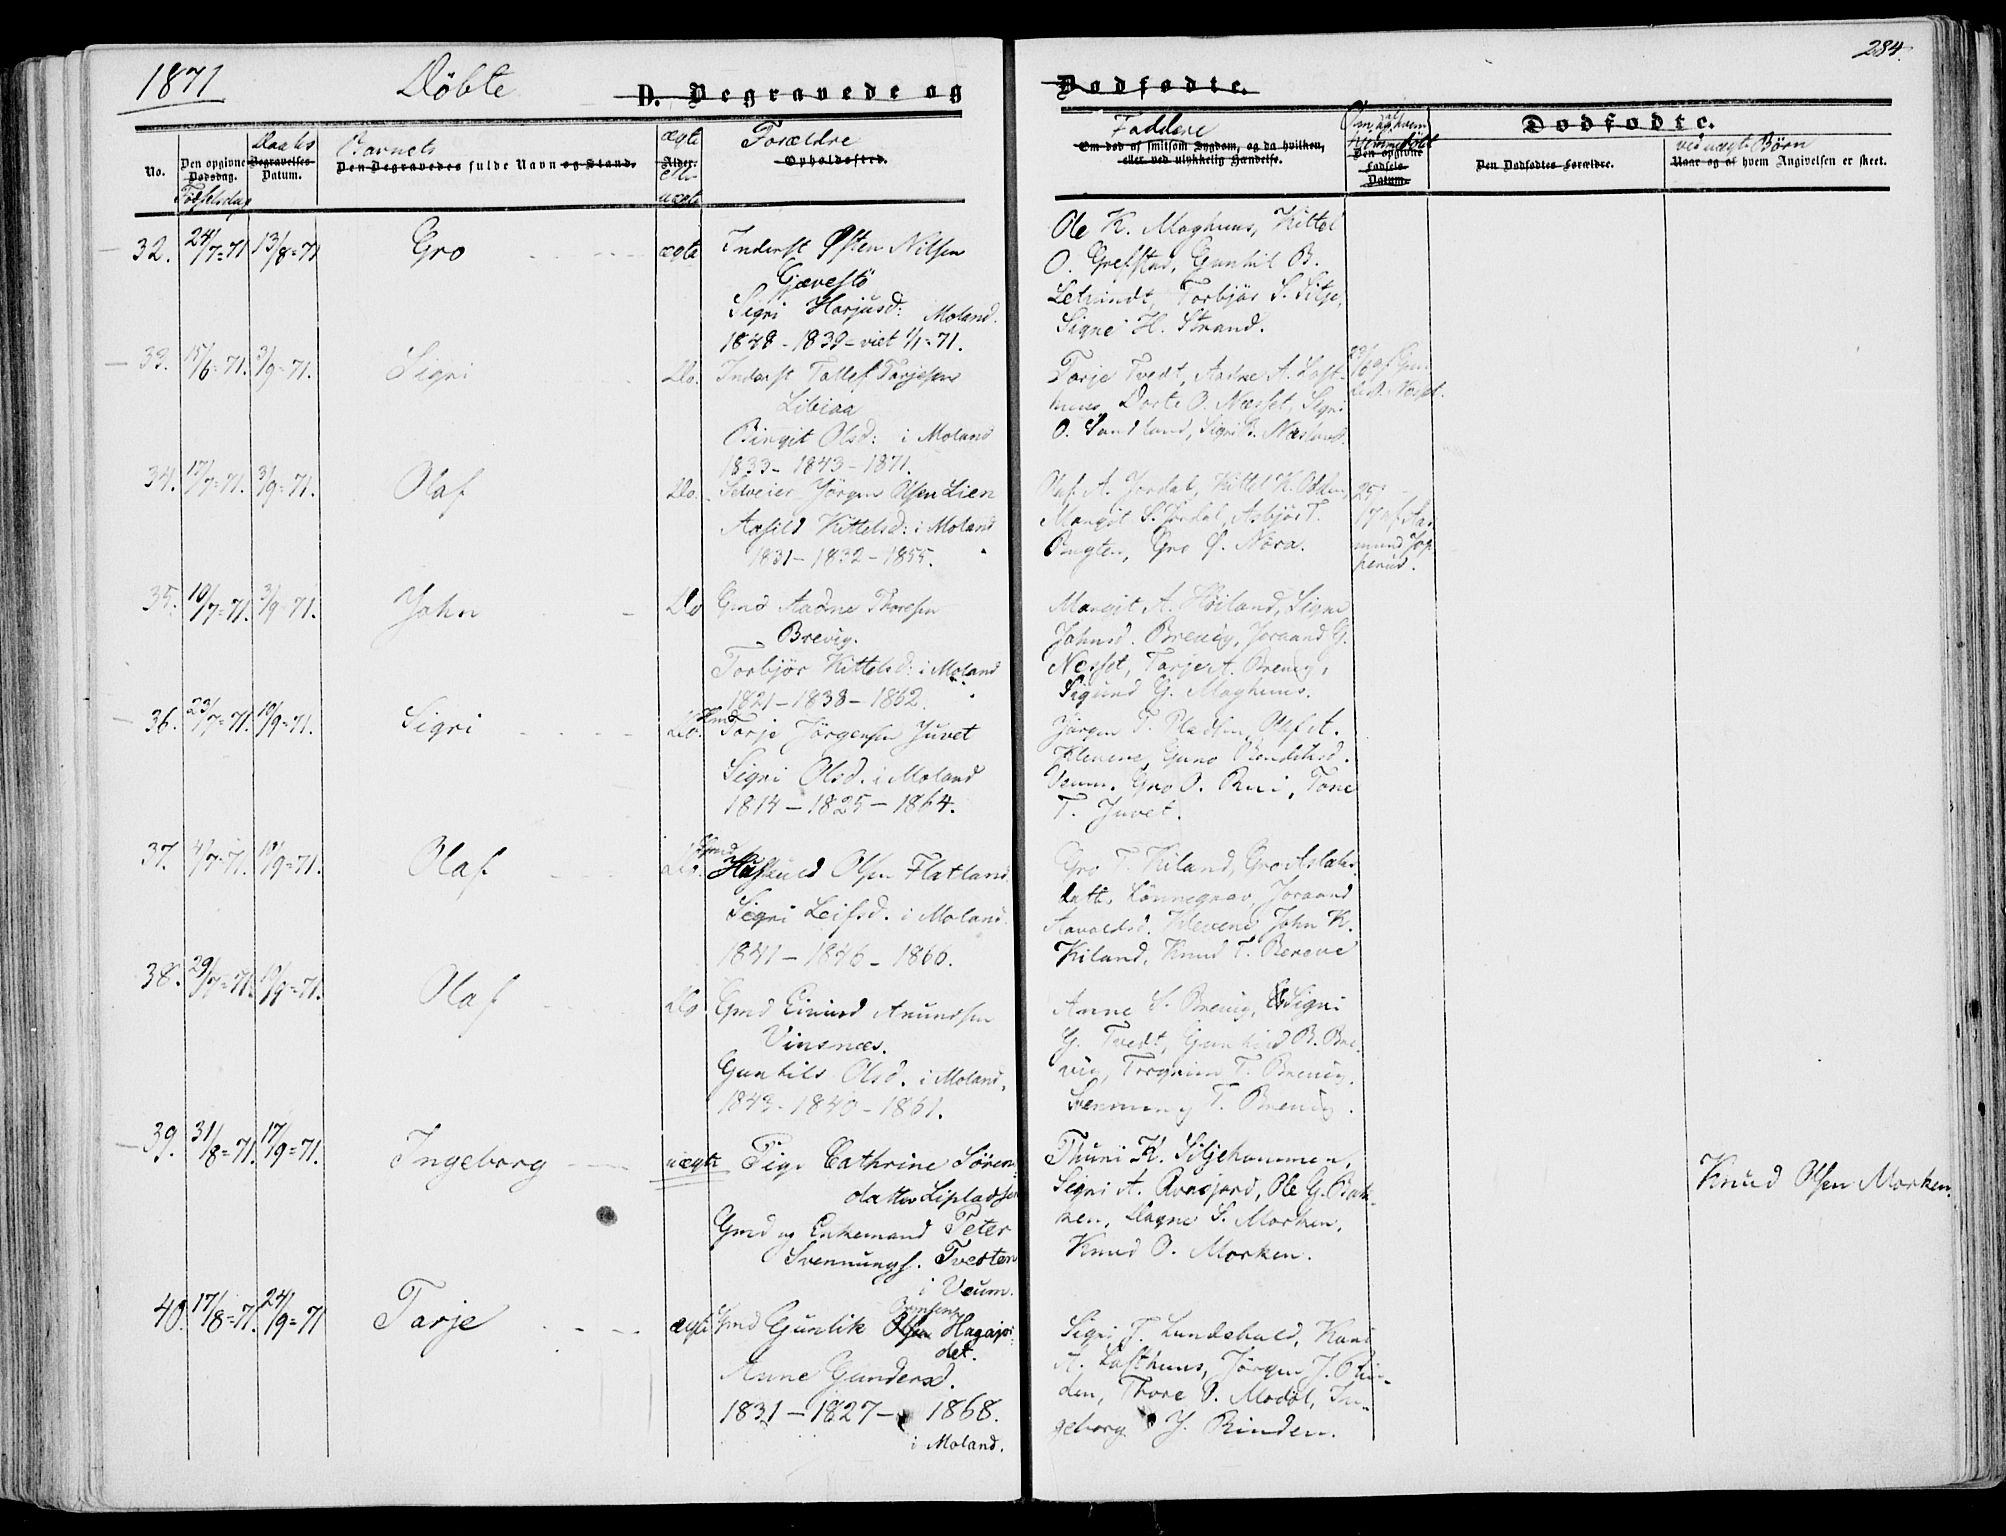 1871
Döbte
D. Begravede og
Dødfødte.
284.
No.
Den opgivne Dødsdag.
Födselsdag
Daabs
Begravelses-
Datum.
Barnets
Den Begravedes fulde Navn og Stand.
ægte
Alder.
ell.
uægte
Forældre
Opholdssted.
Faddere
Om død af smitsom Sygdom, og da hvilken,
eller ved ulykkelig Hændelse.
Om og af hvem
hjemmedöbt
Den opgivne
Fødsels-
Datum.
Dødfødte.
Den Dødfødtes Forældre.
ved uægte Börn
Naar og af hvem Angivelsen er skeet.
32. 24/7=71 13/8=71 Gro ægte Inderst Østen Nilsen
Gjævestö
Sigri Horjusd: Moland.
1848 - 1839 - viet 1/1=71.
Ole K. Moghuus, Kittel
O. Grefstad, Gunhil B.
Torbjör S. Silje,
Signe H. Strand.
33. 15/6=71. 3/9=71. Sigri Do. Inderst Tallef Tarjesen
Libiaa
Birgit Olsd: i Moland
1833 - 1843 - 1871.
Tarje Tvedt, Aadne A. Loft-
huus, Dorte O. Næsset, Sigri
O. Sundlund, Sigri B. Næsland.
34. 17/7=71. 3/9=71. Olaf Do. Selveier Jörgen Olsen Lien
Aasild Kittelsd: i Moland
1831 - 1832 - 1855.
Olaf A. Jordal, Kittel K. Odden,
Margit S. Jordal, Asbjör T.
Bugten, Gro Ø. Nöra.
35. 10/7=71. 3/9=71. John Do Gmd Aadne Thoresen
Brevig.
Torbjör Kittelsd: i Moland
1821 - 1838 - 1862.
Margit A. Höiland, Signe
Johnsd. Brevig, Joraand G.
Nesset, Tarje A. Brevig,
Sigund G. Moghuus.
36. 23/7=71. 10/9=71. Sigri Do. Gmd Tarje Jörgensen Juvet
Sigri Olsd. i Moland
1814 - 1825 - 1864.
Jörgen T. Pladsen, Olaf A.
Klevene, Guro
Veum, Gro O. Rui, Tone
T. Juvet.
37. 4/7=71. 10/9=71. Olaf Do. Gmd Olsen Flatland
Sigri Leifsd. i Moland.
1841 - 1846 - 1866.
Gro T. Kiland, Gro Aslaks-
datt. Lönnegrav, Joraand
Aavoldsd. Klevene, John K.
Kiland, Knud T. Berove
38. 29/7=71. 10/9=71. Olaf Do Gmd Eivind Anundsen
Vinsnæs.
Gunhild Olsd. i Moland,
1843 - 1840 - 1861.
Anne S. Brevig, Sigri
G. Tvedt, Gunhild B. Bre-
vig, Torgrim T. Brevig.
Svennung T. Brevig.
39. 31/8=71. 17/9=71. Ingeborg uægte Pige Cathrine Sören-
datter Lipladsen
Gmd og Enkemand Peter
Svennungs. Tvedten
i Veum.
Thuni K. Siljehammen,
Sigri A. Ole G. Bak-
ken, Dagne S. Morken,
Knud O. Morken.
Knud Olsen Morken.
40. 17/8=71. 24/9=71 Tarje ægte Gmd Gunlik Olsen Hagajor-
det.
Anne Gundersd.
1831 - 1827 - 1868.
i Moland.
Sigri T. Lundsbald, Kari
A. Lofthuus, Jörgen J. Rin-
den, Thore O. Modöl, In-
geborg J. Rinden.